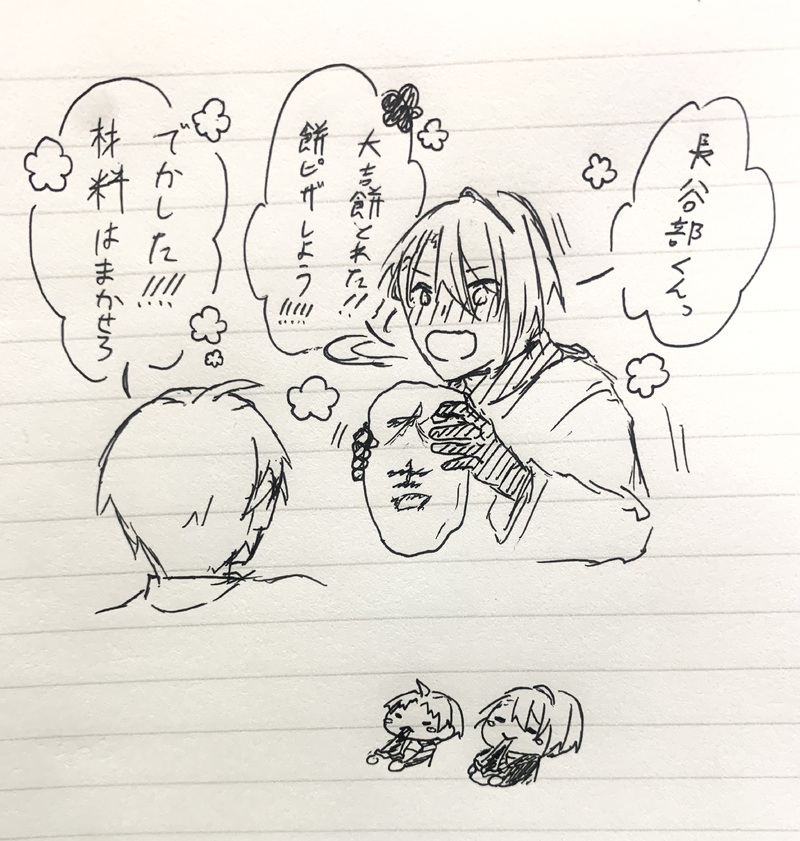 長谷部くんっ
大吉餅とれた!!
餅ピザしよう!!!!!
でかした!!!!
材料はまかせろ
大吉